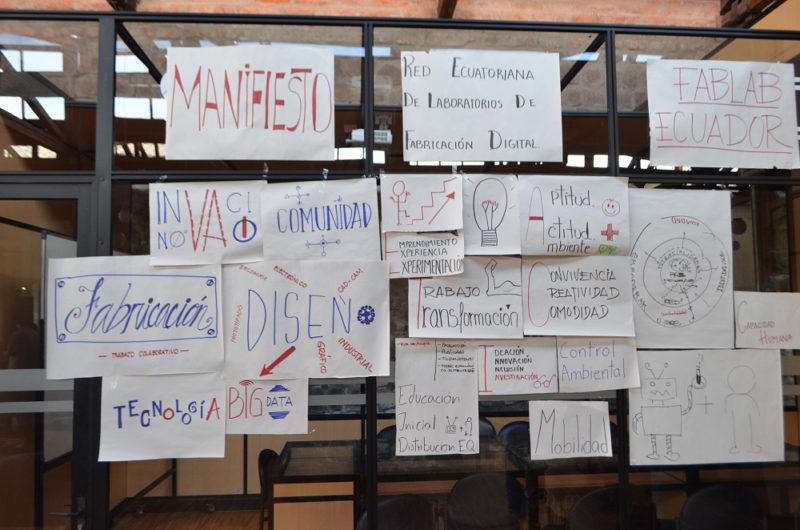 MANIFIESTO
RED ECUATORIANA
DE LABORATORIOS DE
FABRICACIÓN DIGITAL.
FABLAB
ECUADOR
INNOVACIÓN
COMUNIDAD
EMPRENDIMIENTO
EXPERIENCIA
EXPERIMENTACIÓN
Aptitud.
Actitud.
Ambiente
Fabricación
— TRABAJO COLABORATIVO —
DISEÑO
ELECTRÓNICO
CAD-CAM
GRÁFICO
INDUSTRIAL
TRABAJO
Transformación
CONVIVENCIA
CREATIVIDAD
COMODIDAD
CAPACIDAD
HUMANA
TECNOLOGÍA
BIG DATA
Educación
Inicial
Distribución EQ
IDEACIÓN
INNOVACIÓN
INCLUSIÓN
INVESTIGACIÓN
Control
Ambiental
Movilidad